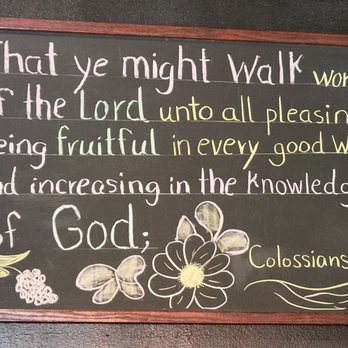 That ye might walk wor
of the Lord unto all pleasin
eing fruitful in every good w
nd increasing in the knowledg
of God;
Colossians